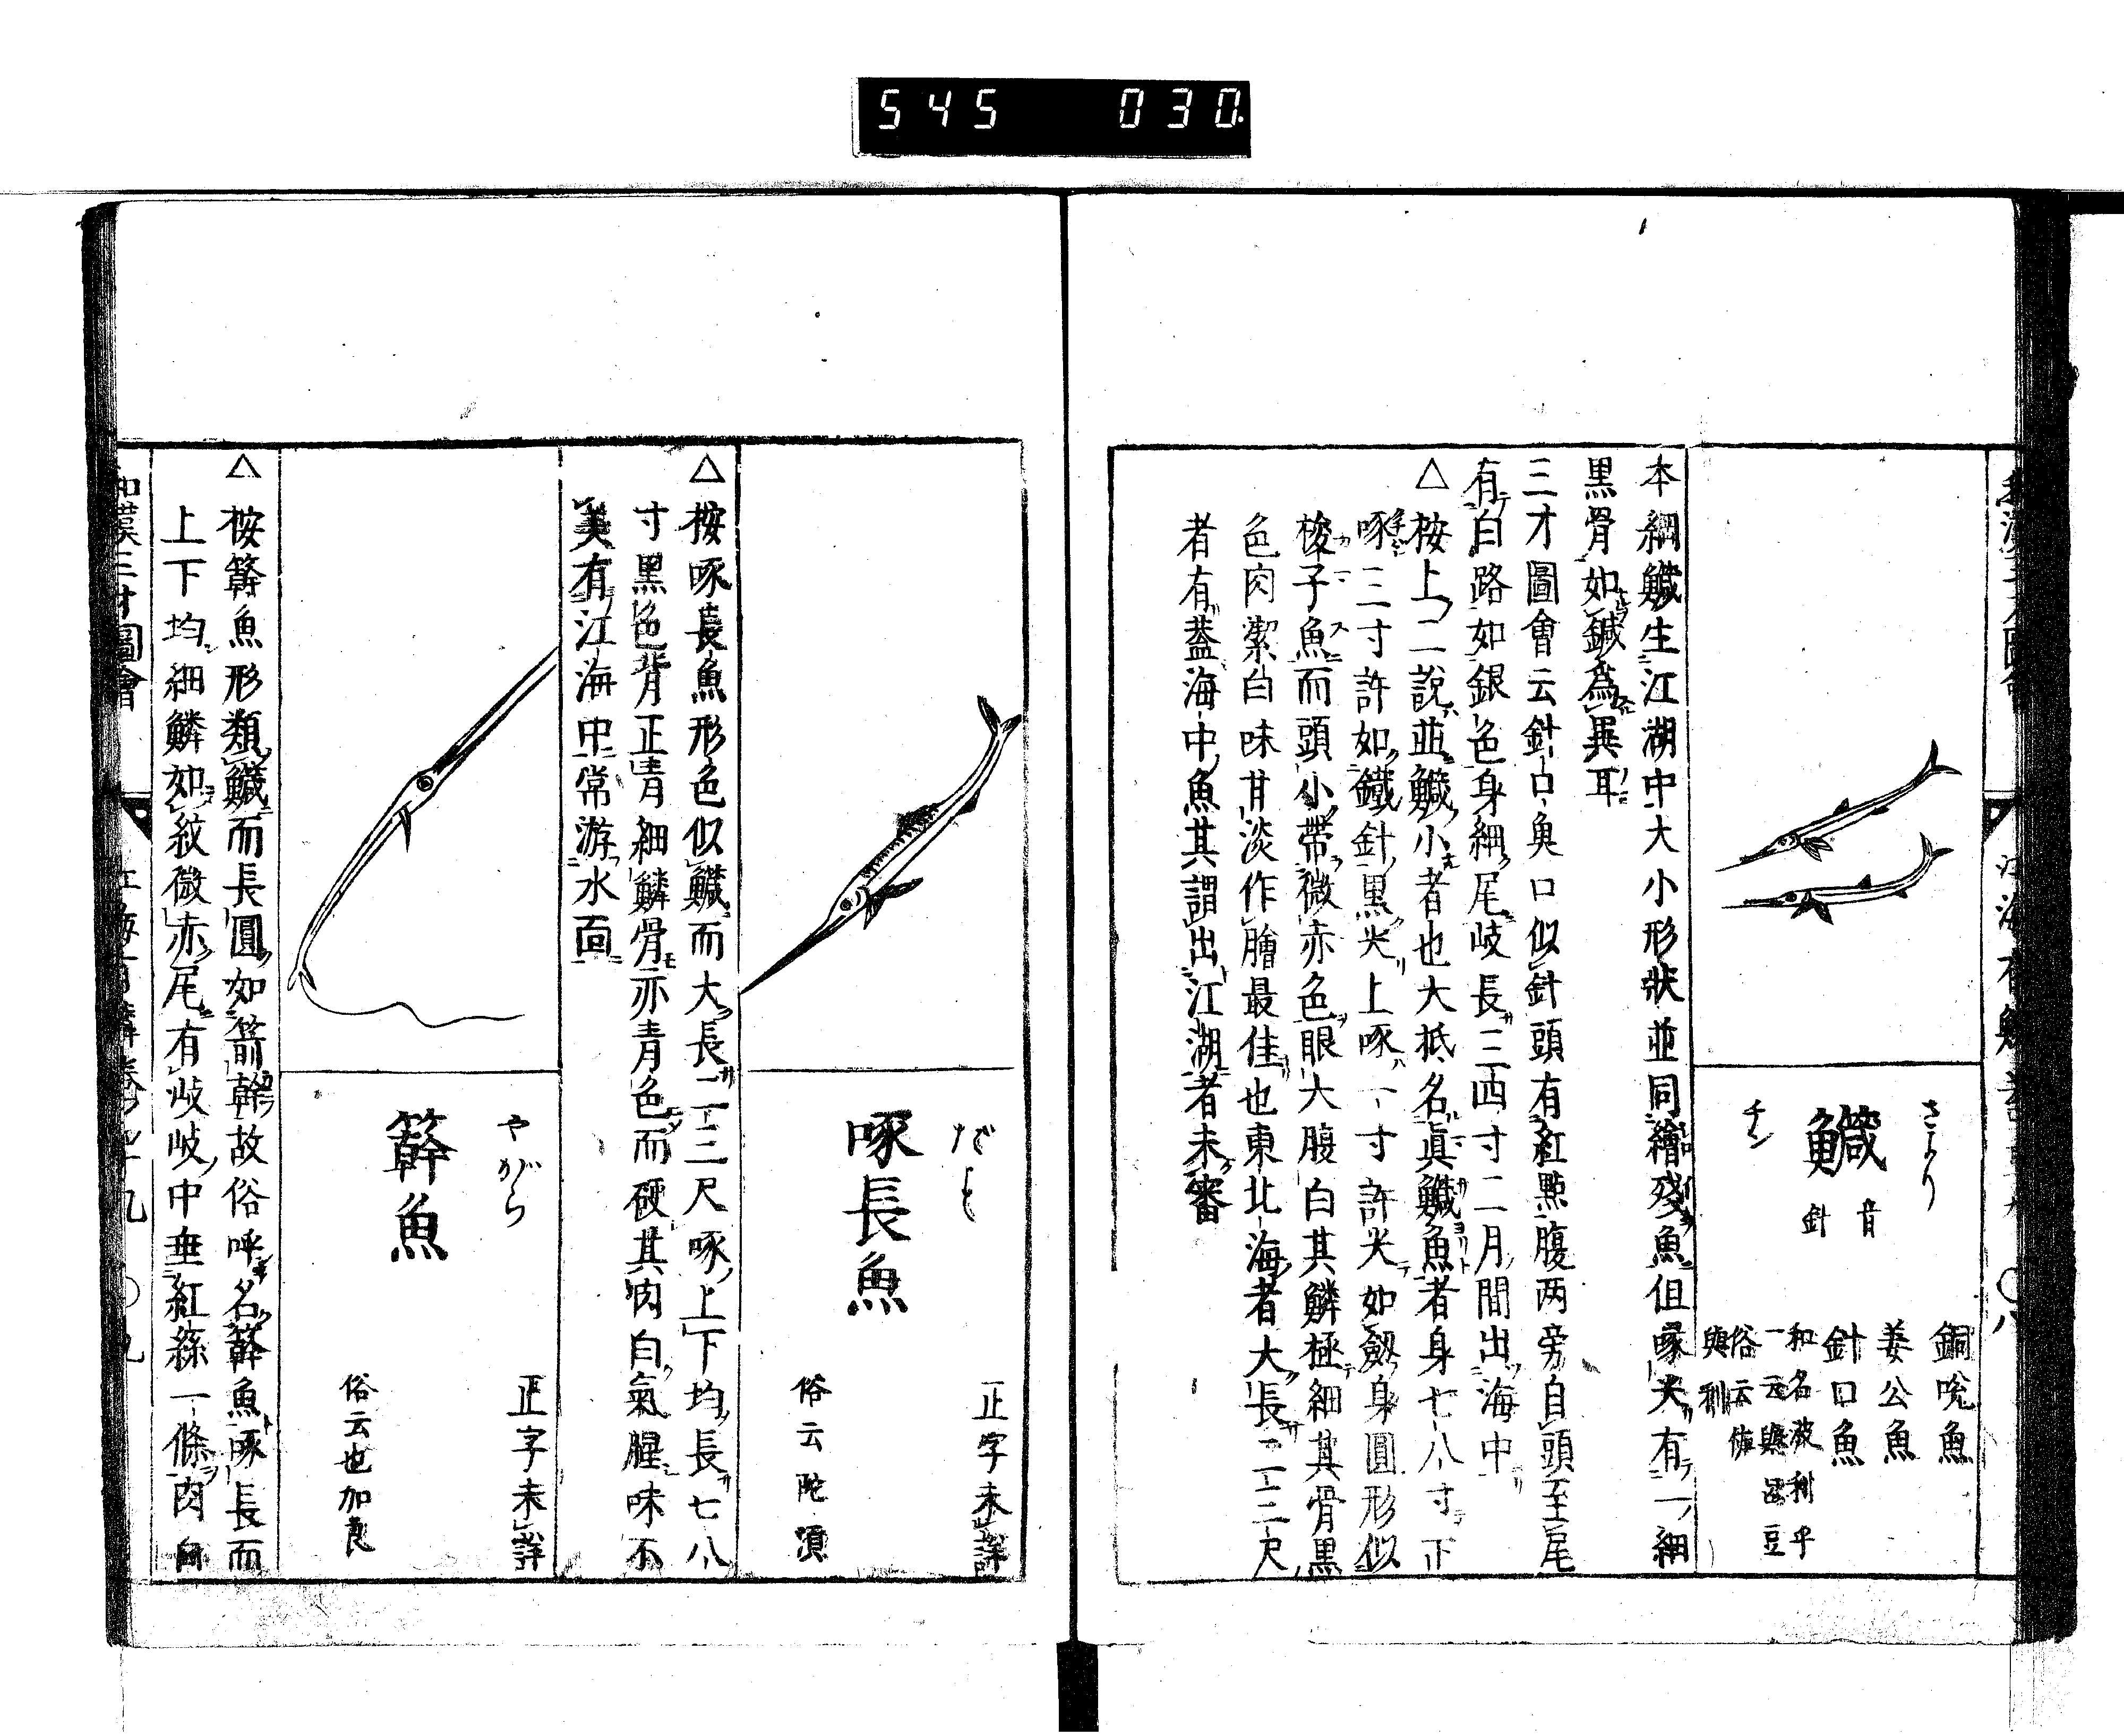 545 030
さより
鱵
音針
チン
銅哾魚
姜公魚
針口魚
和名波利乎
一云與呂豆
俗云佐
與利
本綱鱵生江湖中大小形狀並同繪殘魚但啄尖有一細
黒骨如鍼爲異耳
三才圖會云針口魚口似針頭有紅點腹两旁自頭至尾
有白路如銀色身細尾岐長三四寸二月間出海中
△按上二說並鱵小者也大抵名眞鱵魚者身七八寸下
啄三寸許如鐵針黒尖上啄一寸許尖如劔身圓形似
梭子魚而頭小帶微赤色眼大腹白其鱗極細其骨黒
色肉潔白味甘淡作膾最佳也東北海者大長二三尺
者有蓋海中魚其謂出江湖者未審
だす
啄長魚
正字未詳
俗云陀須
△按啄長魚形色似鱵而大長二三尺啄上下均長七八
寸黒色背正青細鱗骨亦青色而硬其肉白氣腥味不
美有江海中常游水面
やがら
簳魚
正字未詳
俗云也加良
△按簳魚形類鱵而長圓如箭幹故俗呼名簳魚啄長而
上下均細鱗如紋微赤尾有岐岐中垂紅絲一條肉白
和漢三才圖會